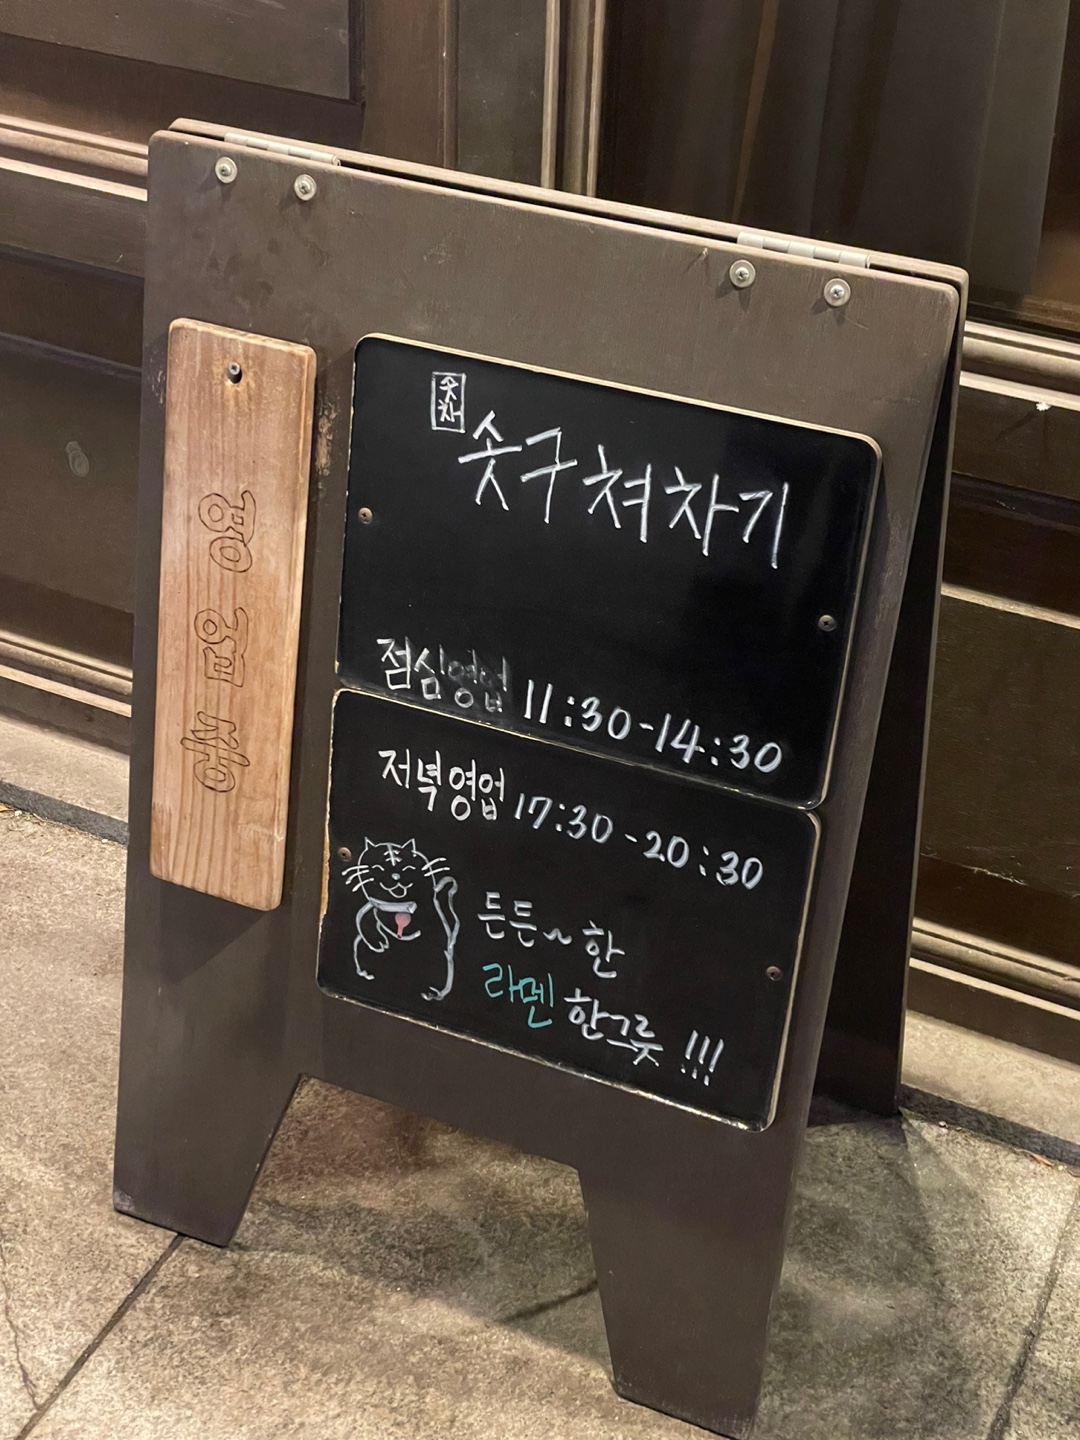 솟차
솟구쳐차기
점심영업 11:30-14:30
저녁영업 17:30-20:30
든든~한
라멘 한그릇 !!!